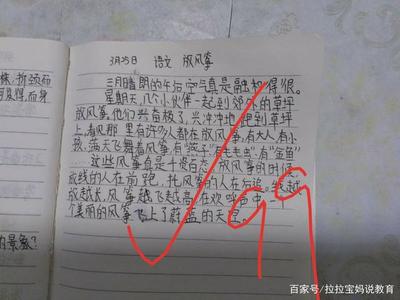 3月25日 语文 放风筝
三月晴朗的午后,空气真是融和得很。
星期天,几个小伙伴一起到郊外的草坪
放风筝。他们兴奋极了,兴冲冲地跑到草坪
上,看见那里有许多人都在放风筝,有大人,有小
孩,满天飞舞着风筝,有“燕子”有“毛毛虫”,有“金鱼”
……这些风筝真是千姿百态。放风筝的时候,
放线的人在前跑,托风筝的人在后追。线越
放越长,风筝越飞越高,在欢呼声中,一个
个美丽的风筝飞上了蔚蓝的天空。
99
的景象?
百家号/拉拉宝妈说教育